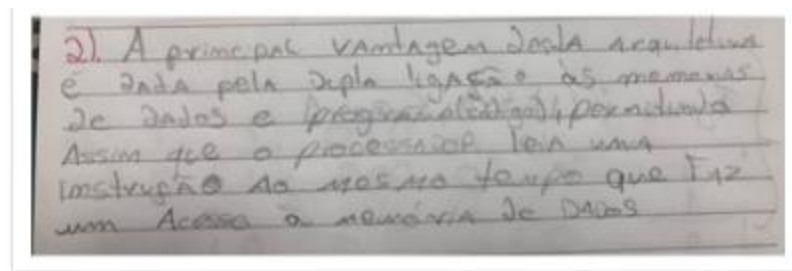 2). A principal vantagem desta arquitetura
é dada pela dupla ligação às memorias
de dados e programa (código), permitindo
Assim que o processador leia uma
instrução ao mesmo tempo que faz
um Acesso a memória de DADOS